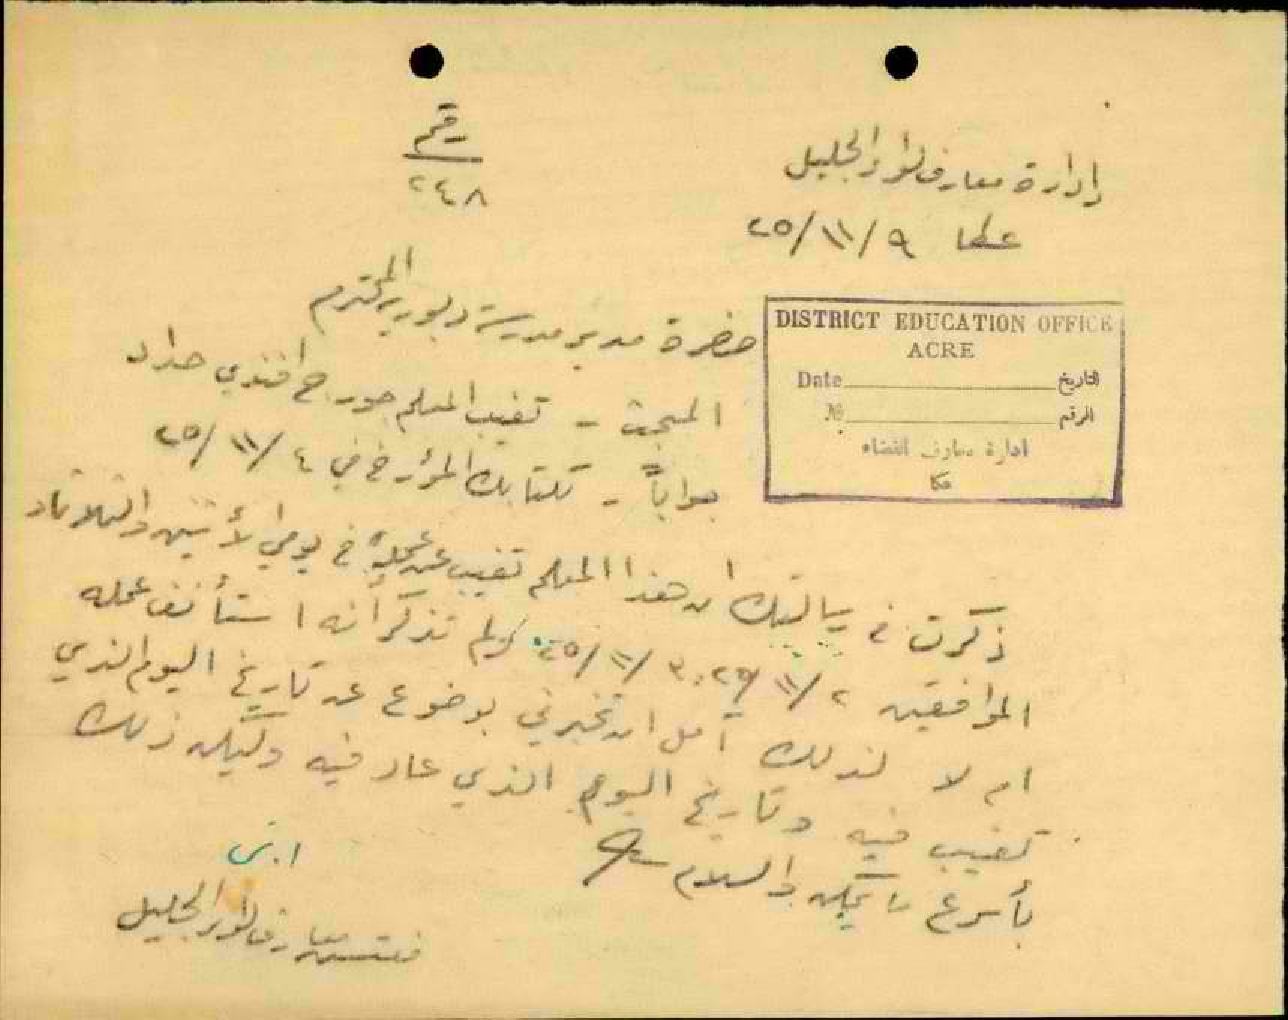 رقم
٢٤٨
إدارة معارف لواء الجليل
عكا ٩/١١/٢٥
DISTRICT EDUCATION OFFICE
ACRE
Date التاريخ
№ الرقم
ادارة معارف القضاء
عكا
حضرة مدير مدرسة دبورية المحترم
المبحث - تغيب المعلم جورج افندي حداد
جواباً - لكتابك المؤرخ في ٤/١١/٢٥
ذكرت في رسالتك ان هذا المعلم تغيب عن عمله في يومي الأثنين والثلاثاء
الموافقين ٢/١١/٢٥ و ٣/١١/٢٥ ولم تذكر أنه استأنف عمله
ام لا لذلك آمل ان تخبرني بوضوح عن تاريخ اليوم الذي
تغيب فيه وتاريخ اليوم الذي عاد فيه وليكن ذلك
بأسرع ما يمكن والسلام
مفتش معارف لواء الجليل